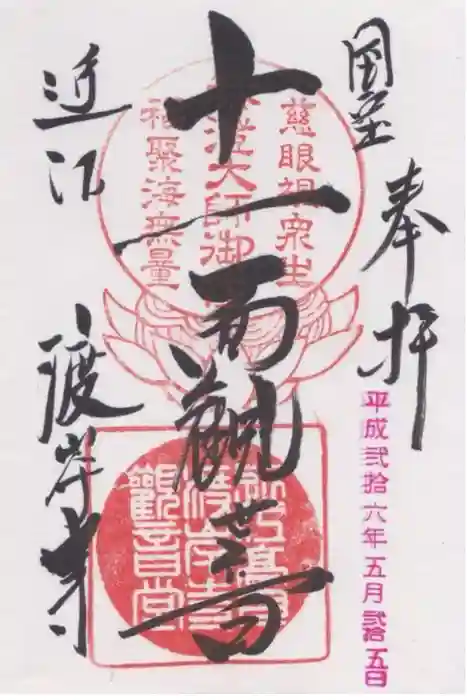 国宝 奉拝
平成弐拾六年五月弐拾五日
十一面観世音
慈眼視衆生
伝澄大師御
福聚海無量
渡岸寺
觀音堂
近江 渡岸寺